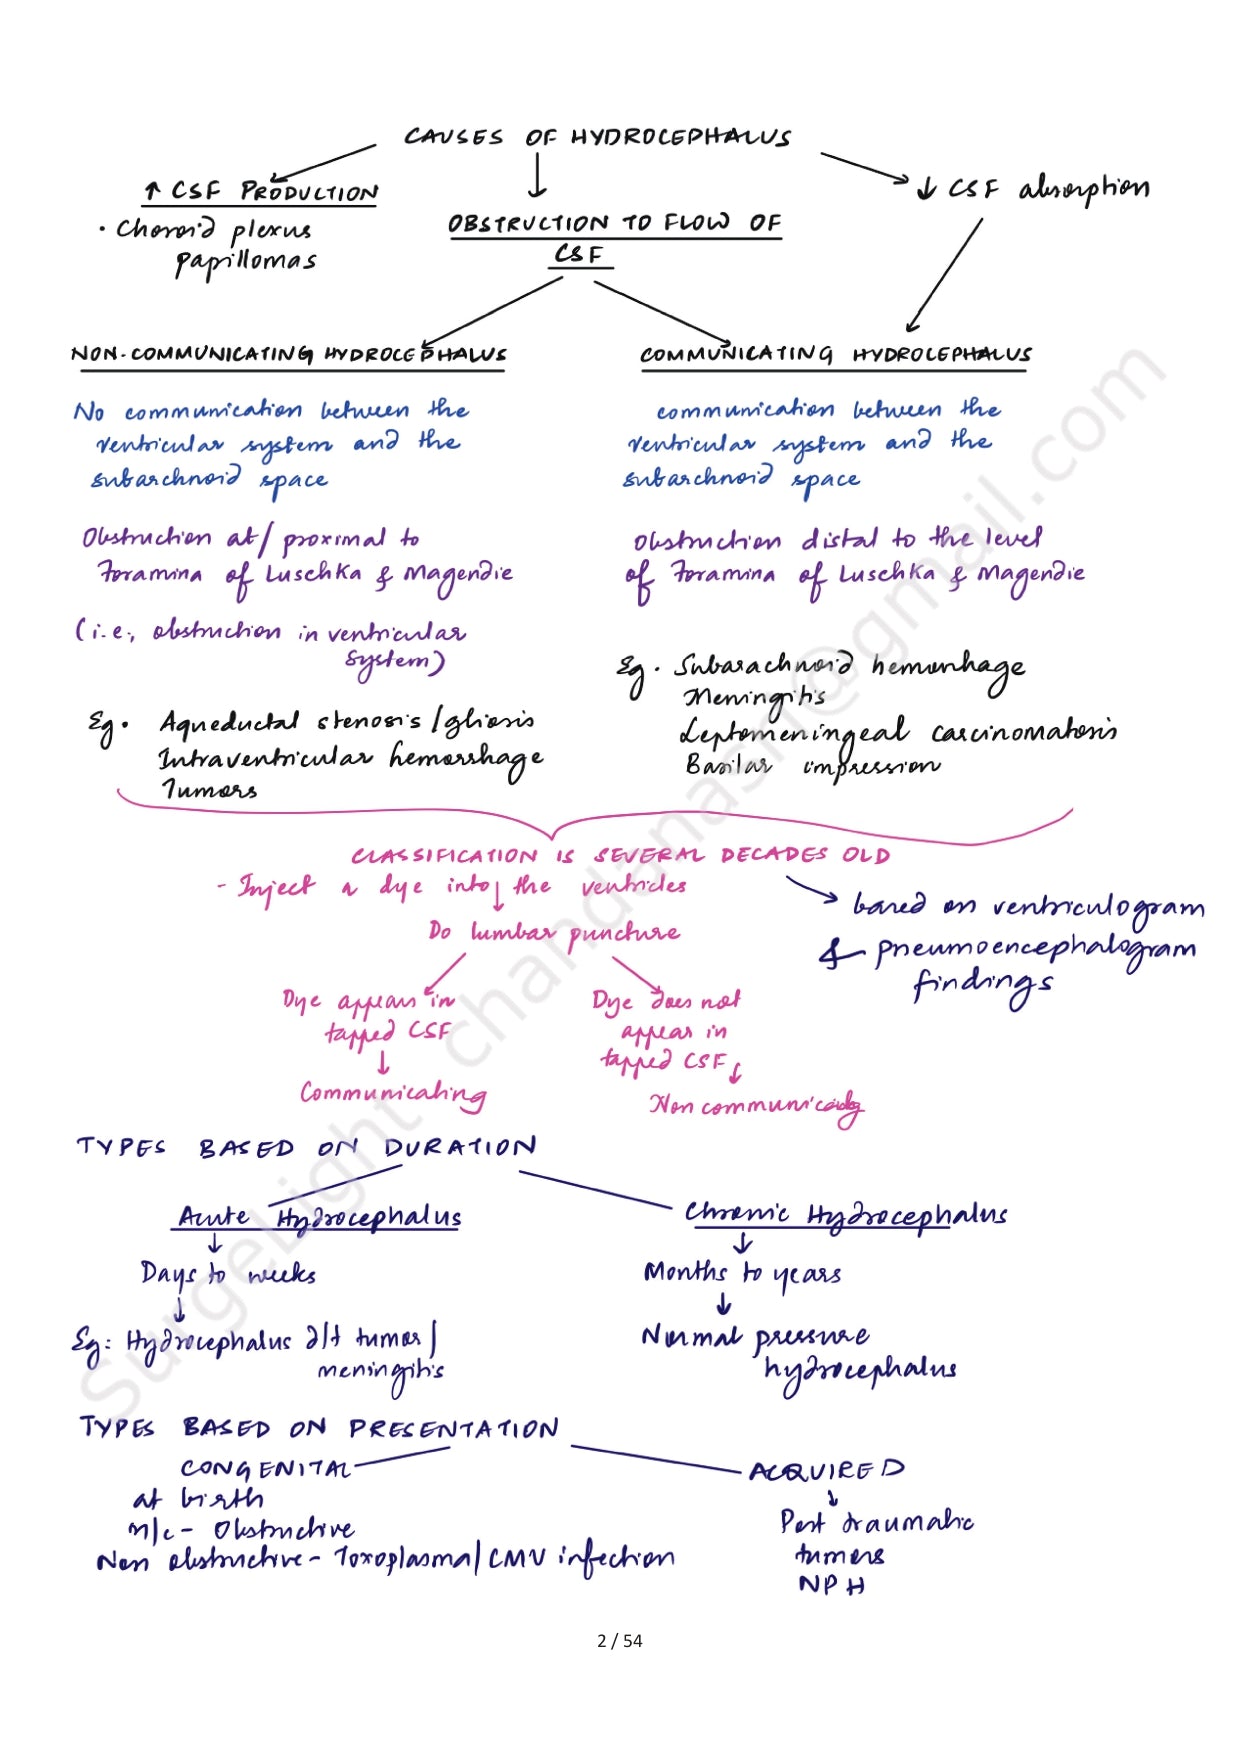 CAUSES OF HYDROCEPHALUS
↑ CSF PRODUCTION
• Choroid plexus
papillomas
OBSTRUCTION TO FLOW OF
CSF
↓ CSF absorption
NON-COMMUNICATING HYDROCEPHALUS
No communication between the
ventricular system and the
subarchnoid space
Obstruction at/ proximal to
Foramina of Luschka & Magendie
(i.e., obstruction in ventricular
system)
Eg. Aqueductal stenosis/gliosis
Intraventricular hemorrhage
Tumors
COMMUNICATING HYDROCEPHALUS
communication between the
ventricular system and the
subarchnoid space
Obstruction distal to the level
of Foramina of Luschka & Magendie
Eg. Subarachnoid hemorrhage
Meningitis
Leptomeningeal carcinomatosis
Basilar impression
CLASSIFICATION IS SEVERAL DECADES OLD
- Inject a dye into the ventricles
Do lumbar puncture
Dye appears in
tapped CSF
Communicating
Dye does not
appear in
tapped CSF
Non communicating
based on ventriculogram
& pneumoencephalogram
findings
TYPES BASED ON DURATION
Acute Hydrocephalus
Days to weeks
Eg: Hydrocephalus d/t tumor/
meningitis
Chronic Hydrocephalus
Months to years
Normal pressure
hydrocephalus
TYPES BASED ON PRESENTATION
CONGENITAL
at birth
m/c - Obstructive
Non obstructive - Toxoplasma/CMV infection
ACQUIRED
Post traumatic
tumors
NPH
SurgeLight chandanasri@gmail.com
2 / 54